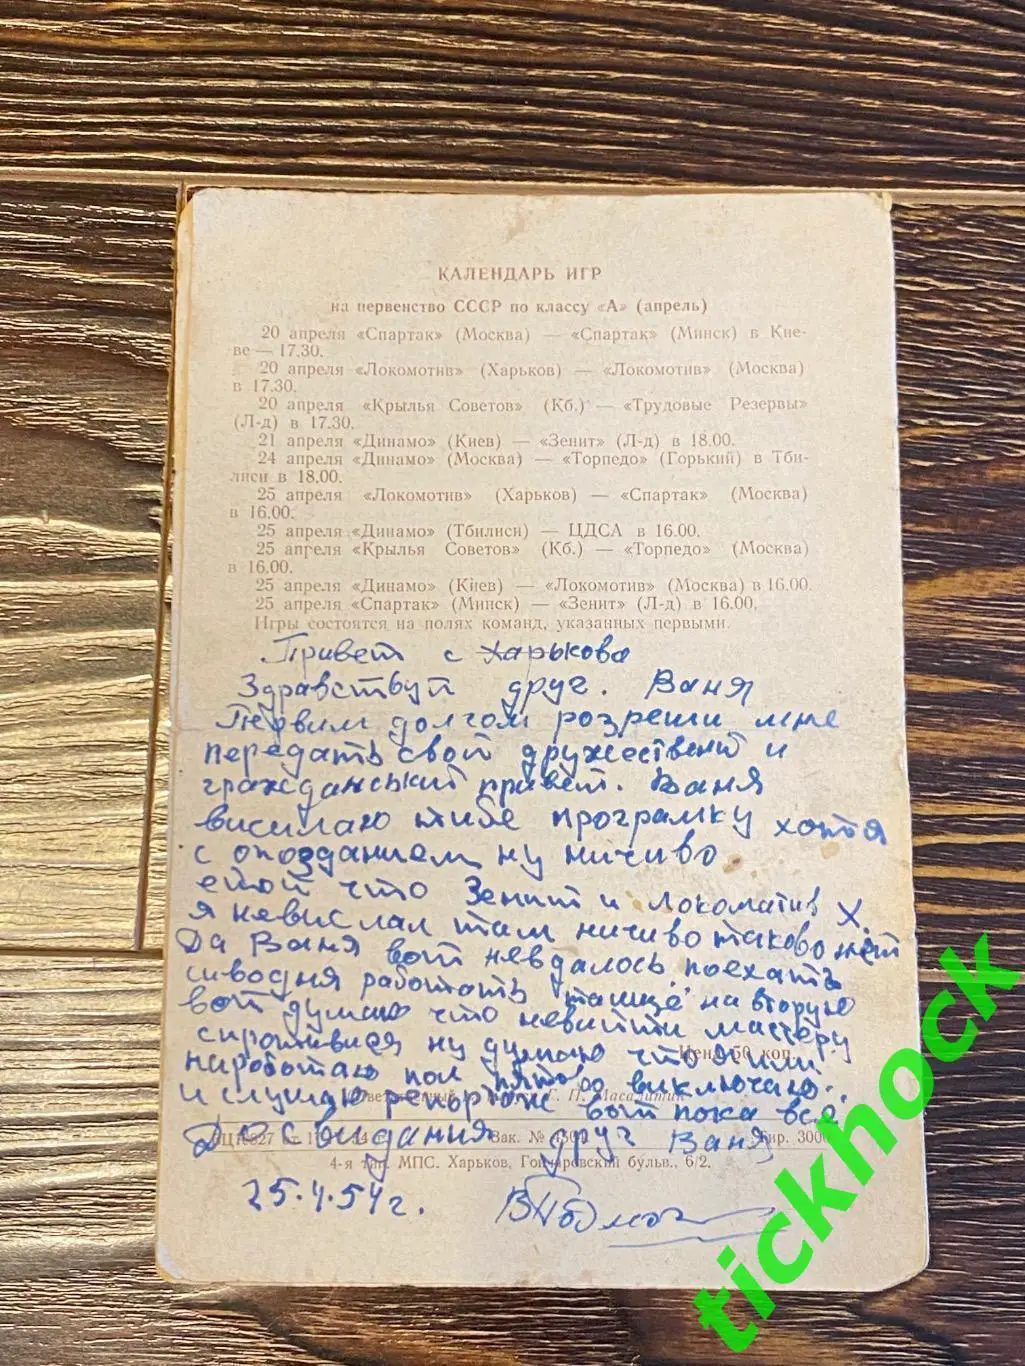 КАЛЕНДАРЬ ИГР
на первенство СССР по классу «А» (апрель)
20 апреля «Спартак» (Москва) — «Спартак» (Минск) в Кие-
ве — 17.30.
20 апреля «Локомотив» (Харьков) — «Локомотив» (Москва)
в 17.30.
20 апреля «Крылья Советов» (Кб.) — «Трудовые Резервы»
(Л-д) в 17.30.
21 апреля «Динамо» (Киев) — «Зенит» (Л-д) в 18.00.
24 апреля «Динамо» (Москва) — «Торпедо» (Горький) в Тби-
лиси в 18.00.
25 апреля «Локомотив» (Харьков) — «Спартак» (Москва)
в 16.00.
25 апреля «Динамо» (Тбилиси) — ЦДСА в 16.00.
25 апреля «Крылья Советов» (Кб.) — «Торпедо» (Москва)
в 16.00.
25 апреля «Динамо» (Киев) — «Локомотив» (Москва) в 16.00.
25 апреля «Спартак» (Минск) — «Зенит» (Л-д) в 16.00.
Игры состоятся на полях команд, указанных первыми.
Привет с Харькова
Здравствуй друг. Ваня
Первим долгом розреши мне
передать свой дружествений и
гражданський привет. Ваня
висилаю тибе програмку хотя
с опозданием ну ничиво
етой что Зенит и Локоматив Х.
я невислал там ничиво таково нет
Да Ваня вот невдалось поехать
сиводня работать на вторую
вот думаю что мастеру
ну думаю что
пол пятово виключаю.
и слушаю репортож вот пока все
Цена 50 коп.
Ответственный Г. Н. Масалитин
До свидания друг Ваня
Зак. № Тир. 3000
4-я тип. МПС. Харьков, Гончаровский бульв., 6/2.
25.4.54г.
tickhock